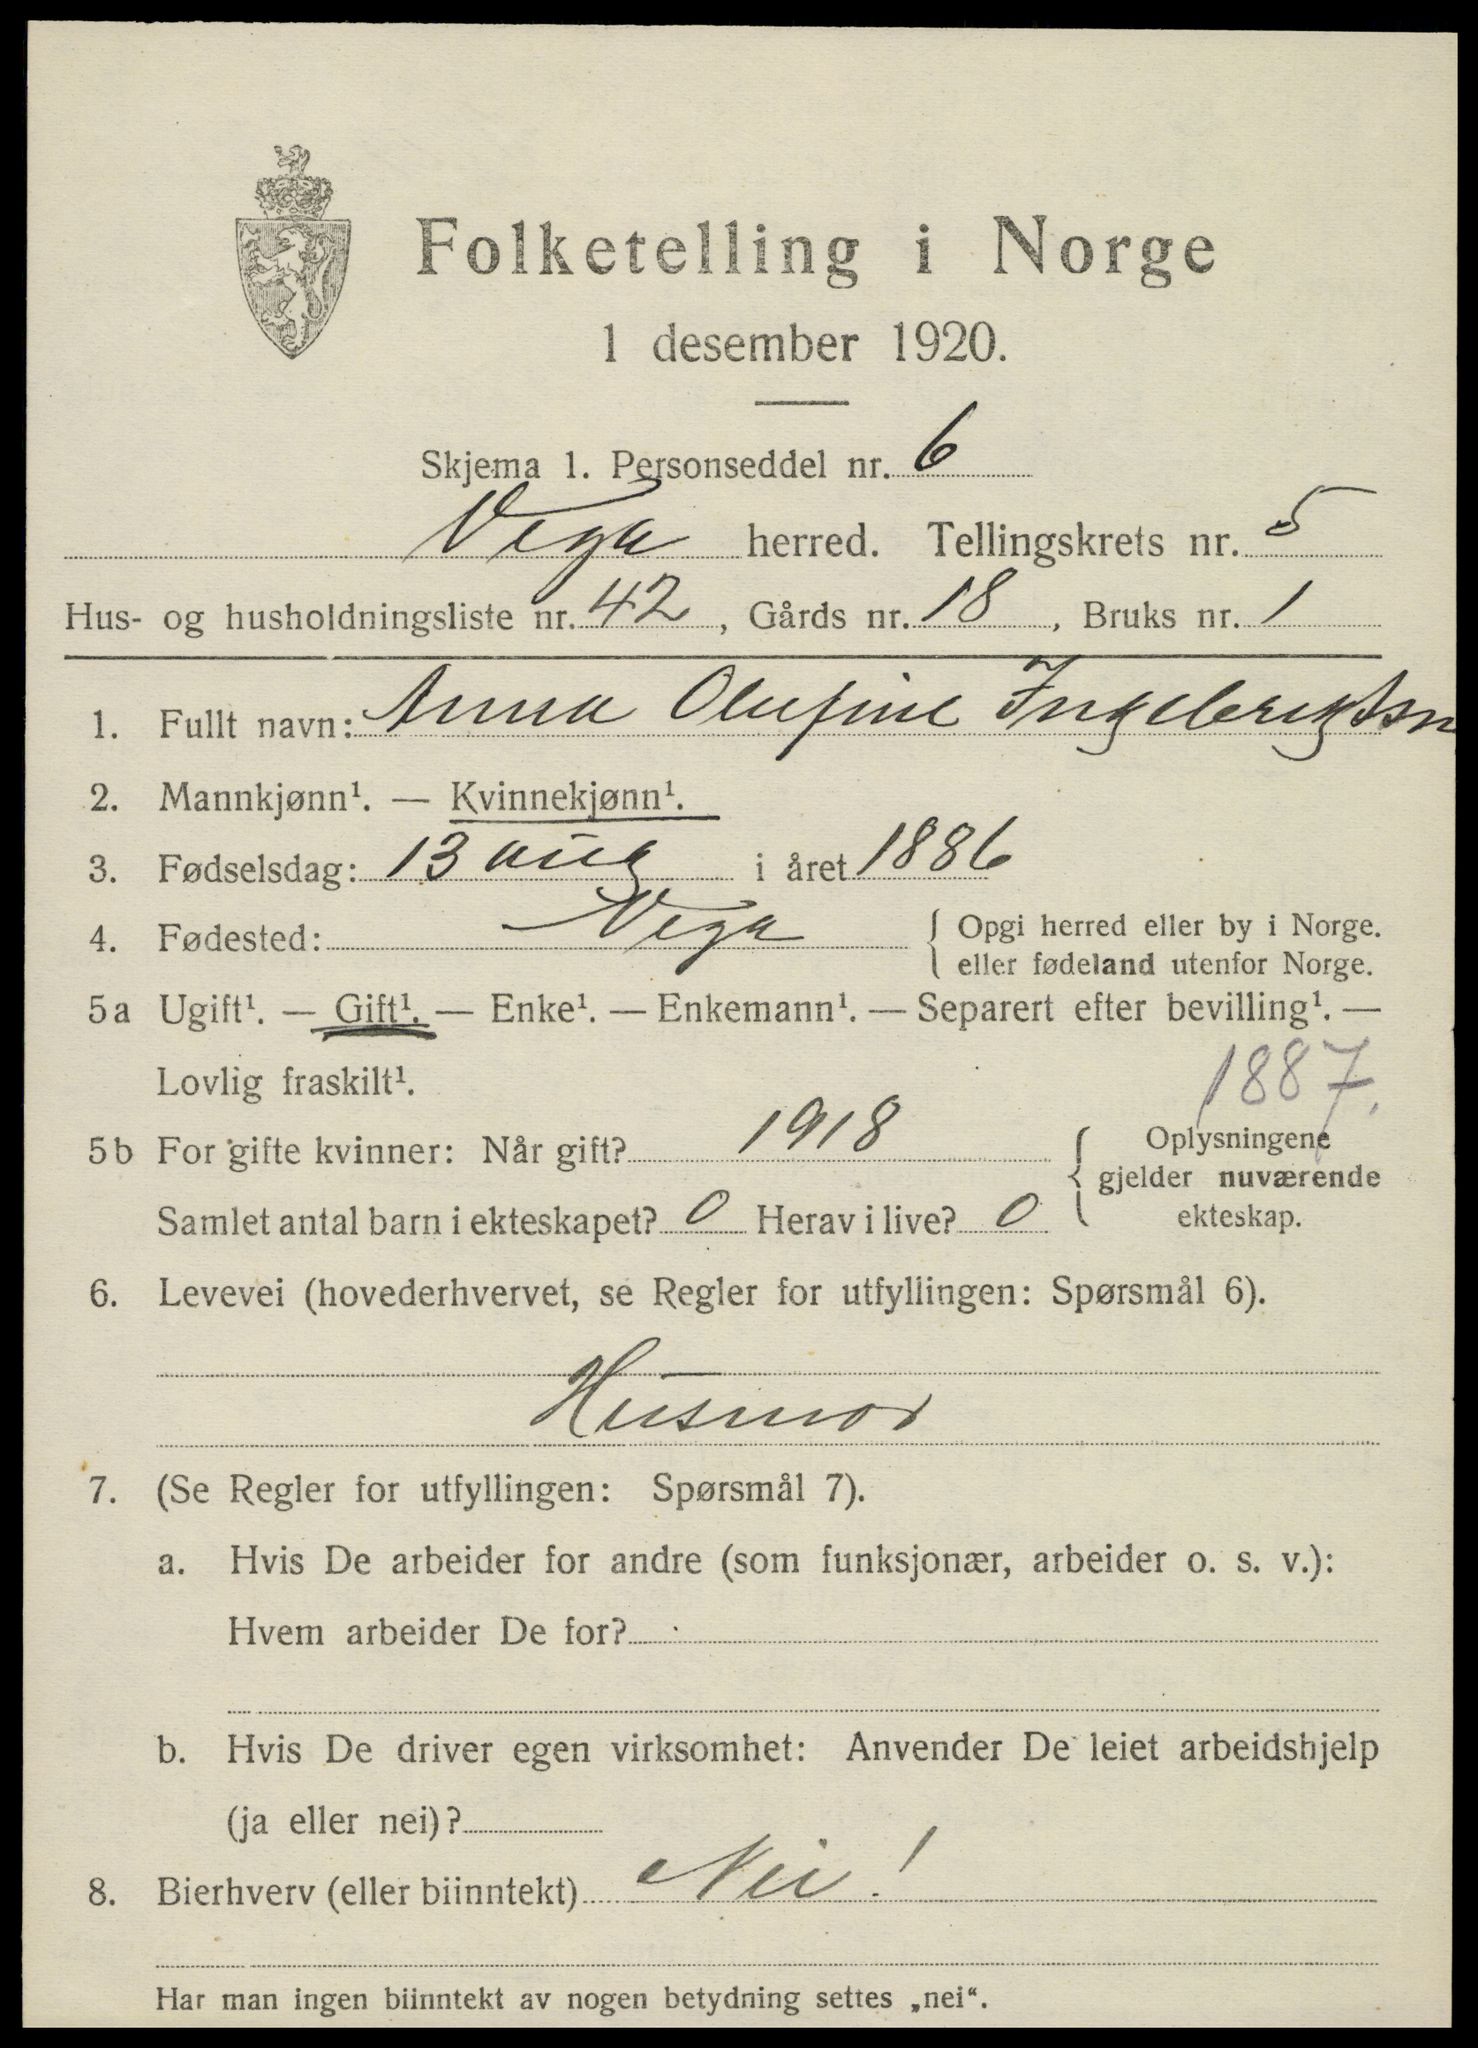 Folketelling i Norge
1 desember 1920.
Skjema 1. Personseddel nr. 6
Vega herred. Tellingskrets nr. 5
Hus- og husholdningsliste nr. 42, Gårds nr. 18, Bruks nr. 1
1. Fullt navn: Anna Olufine Ingebrigtsen
2. Mannkjønn¹. — Kvinnekjønn¹.
3. Fødselsdag: 13 aug i året 1886
4. Fødested: Vega { Opgi herred eller by i Norge.
eller fødeland utenfor Norge.
5a Ugift¹. — Gift¹. — Enke¹. — Enkemann¹. — Separert efter bevilling¹. —
Lovlig fraskilt¹. 1887.
5b For gifte kvinner: Når gift? 1918 { Oplysningene
gjelder nuværende
Samlet antal barn i ekteskapet? 0 Herav i live? 0 ekteskap.
6. Levevei (hovederhvervet, se Regler for utfyllingen: Spørsmål 6).
Husmor
7. (Se Regler for utfyllingen: Spørsmål 7).
a. Hvis De arbeider for andre (som funksjonær, arbeider o. s. v.):
Hvem arbeider De for?
b. Hvis De driver egen virksomhet: Anvender De leiet arbeidshjelp
(ja eller nei)?
8. Bierhverv (eller biinntekt) Nei!
Har man ingen biinntekt av nogen betydning settes „nei“.